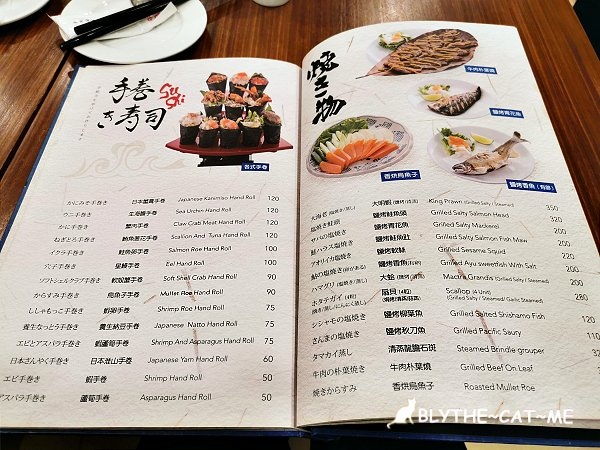 手巻き寿司
Sushi
各式手卷
かにみそ手巻き 日本蟹膏手卷 Japanese Kanimiso Hand Roll 120
ウニ手巻き 生海膽手卷 Sea Urchin Hand Roll 120
かに手巻き 蟹肉手卷 Claw Crab Meet Hand Roll 120
ねぎとろ手巻き 鮪魚蔥花手卷 Scallion And Tuna Hand Roll 120
イクラ手巻き 鮭魚卵手卷 Salmon Roe Hand Roll 100
穴子手巻き 星鰻手卷 Eel Hand Roll
ソフトシェルクラブ手巻き 軟殼蟹手卷 Soft Shell Crab Hand Roll 90
からすみ手巻き 烏魚子手卷 Mullet Roe Hand Roll 90
ししゃもっこ手巻き 蝦卵手卷 Shrimp Roe Hand Roll 75
養生なっとう手巻き 養生納豆手卷 Japanese Natto Hand Roll 75
エビとアスパラ手巻き 蝦蘆筍手卷 Shrimp And Asparagus Hand Roll 75
日本さんやく手巻き 日本淮山手卷 Japanese Yam Hand Roll 60
エビ手巻き 蝦手卷 Shrimp Hand Roll 50
アスパラ手巻き 蘆筍手卷 Asparagus Hand Roll 50
焼き物
牛肉朴葉燒
鹽烤青花魚
鹽烤香魚(有卵)
香烘烏魚子
大海老(塩焼き/蒸し) 大明蝦(鹽烤/清蒸) King Prawn (Grilled Salty / Steamed) 350
塩焼き鮭頭 鹽烤鮭魚頭 Grilled Salty Salmon Head
サバの塩焼き 鹽烤青花魚 Grilled Salty Mackerel
鮭ハラス塩焼き 鹽烤鮭魚肚 Grilled Salty Salmon Fish Maw
アオリイカ塩焼き 鹽烤軟絲 Grilled Sesame Squid
鮎の塩焼き(卵がある) 鹽烤香魚 Grilled Ayu sweetfish With Salt
ハマグリ(塩焼き/蒸し) 大蛤 Mactra Grandis (Grilled Salty / Steamed)
ホタテガイ(4粒) 扇貝(4粒) Scallop (4 Unit) 280
(Grilled Salty / Steamed/ Garlic Steamed)
シシャモの塩焼き 鹽烤柳葉魚 Grilled Salted Shishamo Fish
さんまの塩焼き 鹽烤秋刀魚 Grilled Pacific Saury
タマカイ蒸し 清蒸龍膽石斑 Steamed Brindle grouper
牛肉の朴葉焼き 牛肉朴葉燒 Grilled Beef On Leaf
焼きからすみ 香烘烏魚子 Roasted Mullet Roe
BLYTHE~CAT~ME